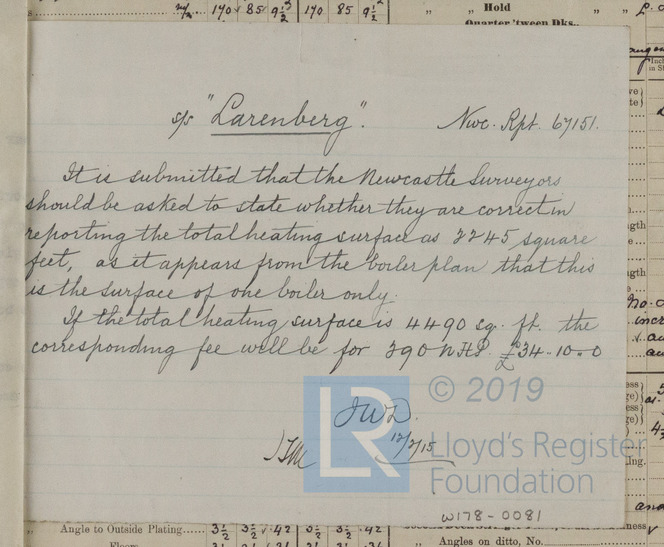 n/2. 170 85 9½ 170 85 9½
" " Hold " "
Quarter 'tween Dks..
s/s "Larenberg". Nwc. Rpt. 67151.
It is submitted that the Newcastle Surveyors
should be asked to state whether they are correct in
reporting the total heating surface as 2245 square
feet, as it appears from the boiler plan that this
is the surface of one boiler only.
If the total heating surface is 4490 sq. ft. the
corresponding fee will be for 390 NHP £34-10-0
JWD.
12/2/15
LR
© 2019
Lloyd's Register
Foundation
W178-0081
" Angle to Outside Plating...... 3½ 3½ .42 3½ 3½ .42
Floors
" Angles on ditto, No.